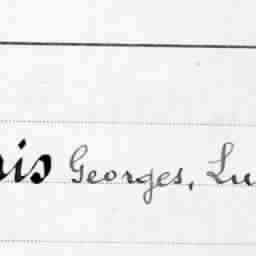 nis Georges, Lu